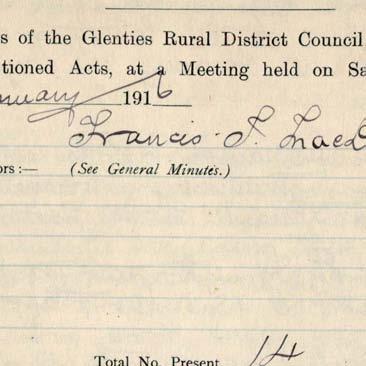 s of the Glenties Rural District Council
tioned Acts, at a Meeting held on Sa
nuary 1916
Francis J.
ors :— (See General Minutes.)
Total No. Present 14